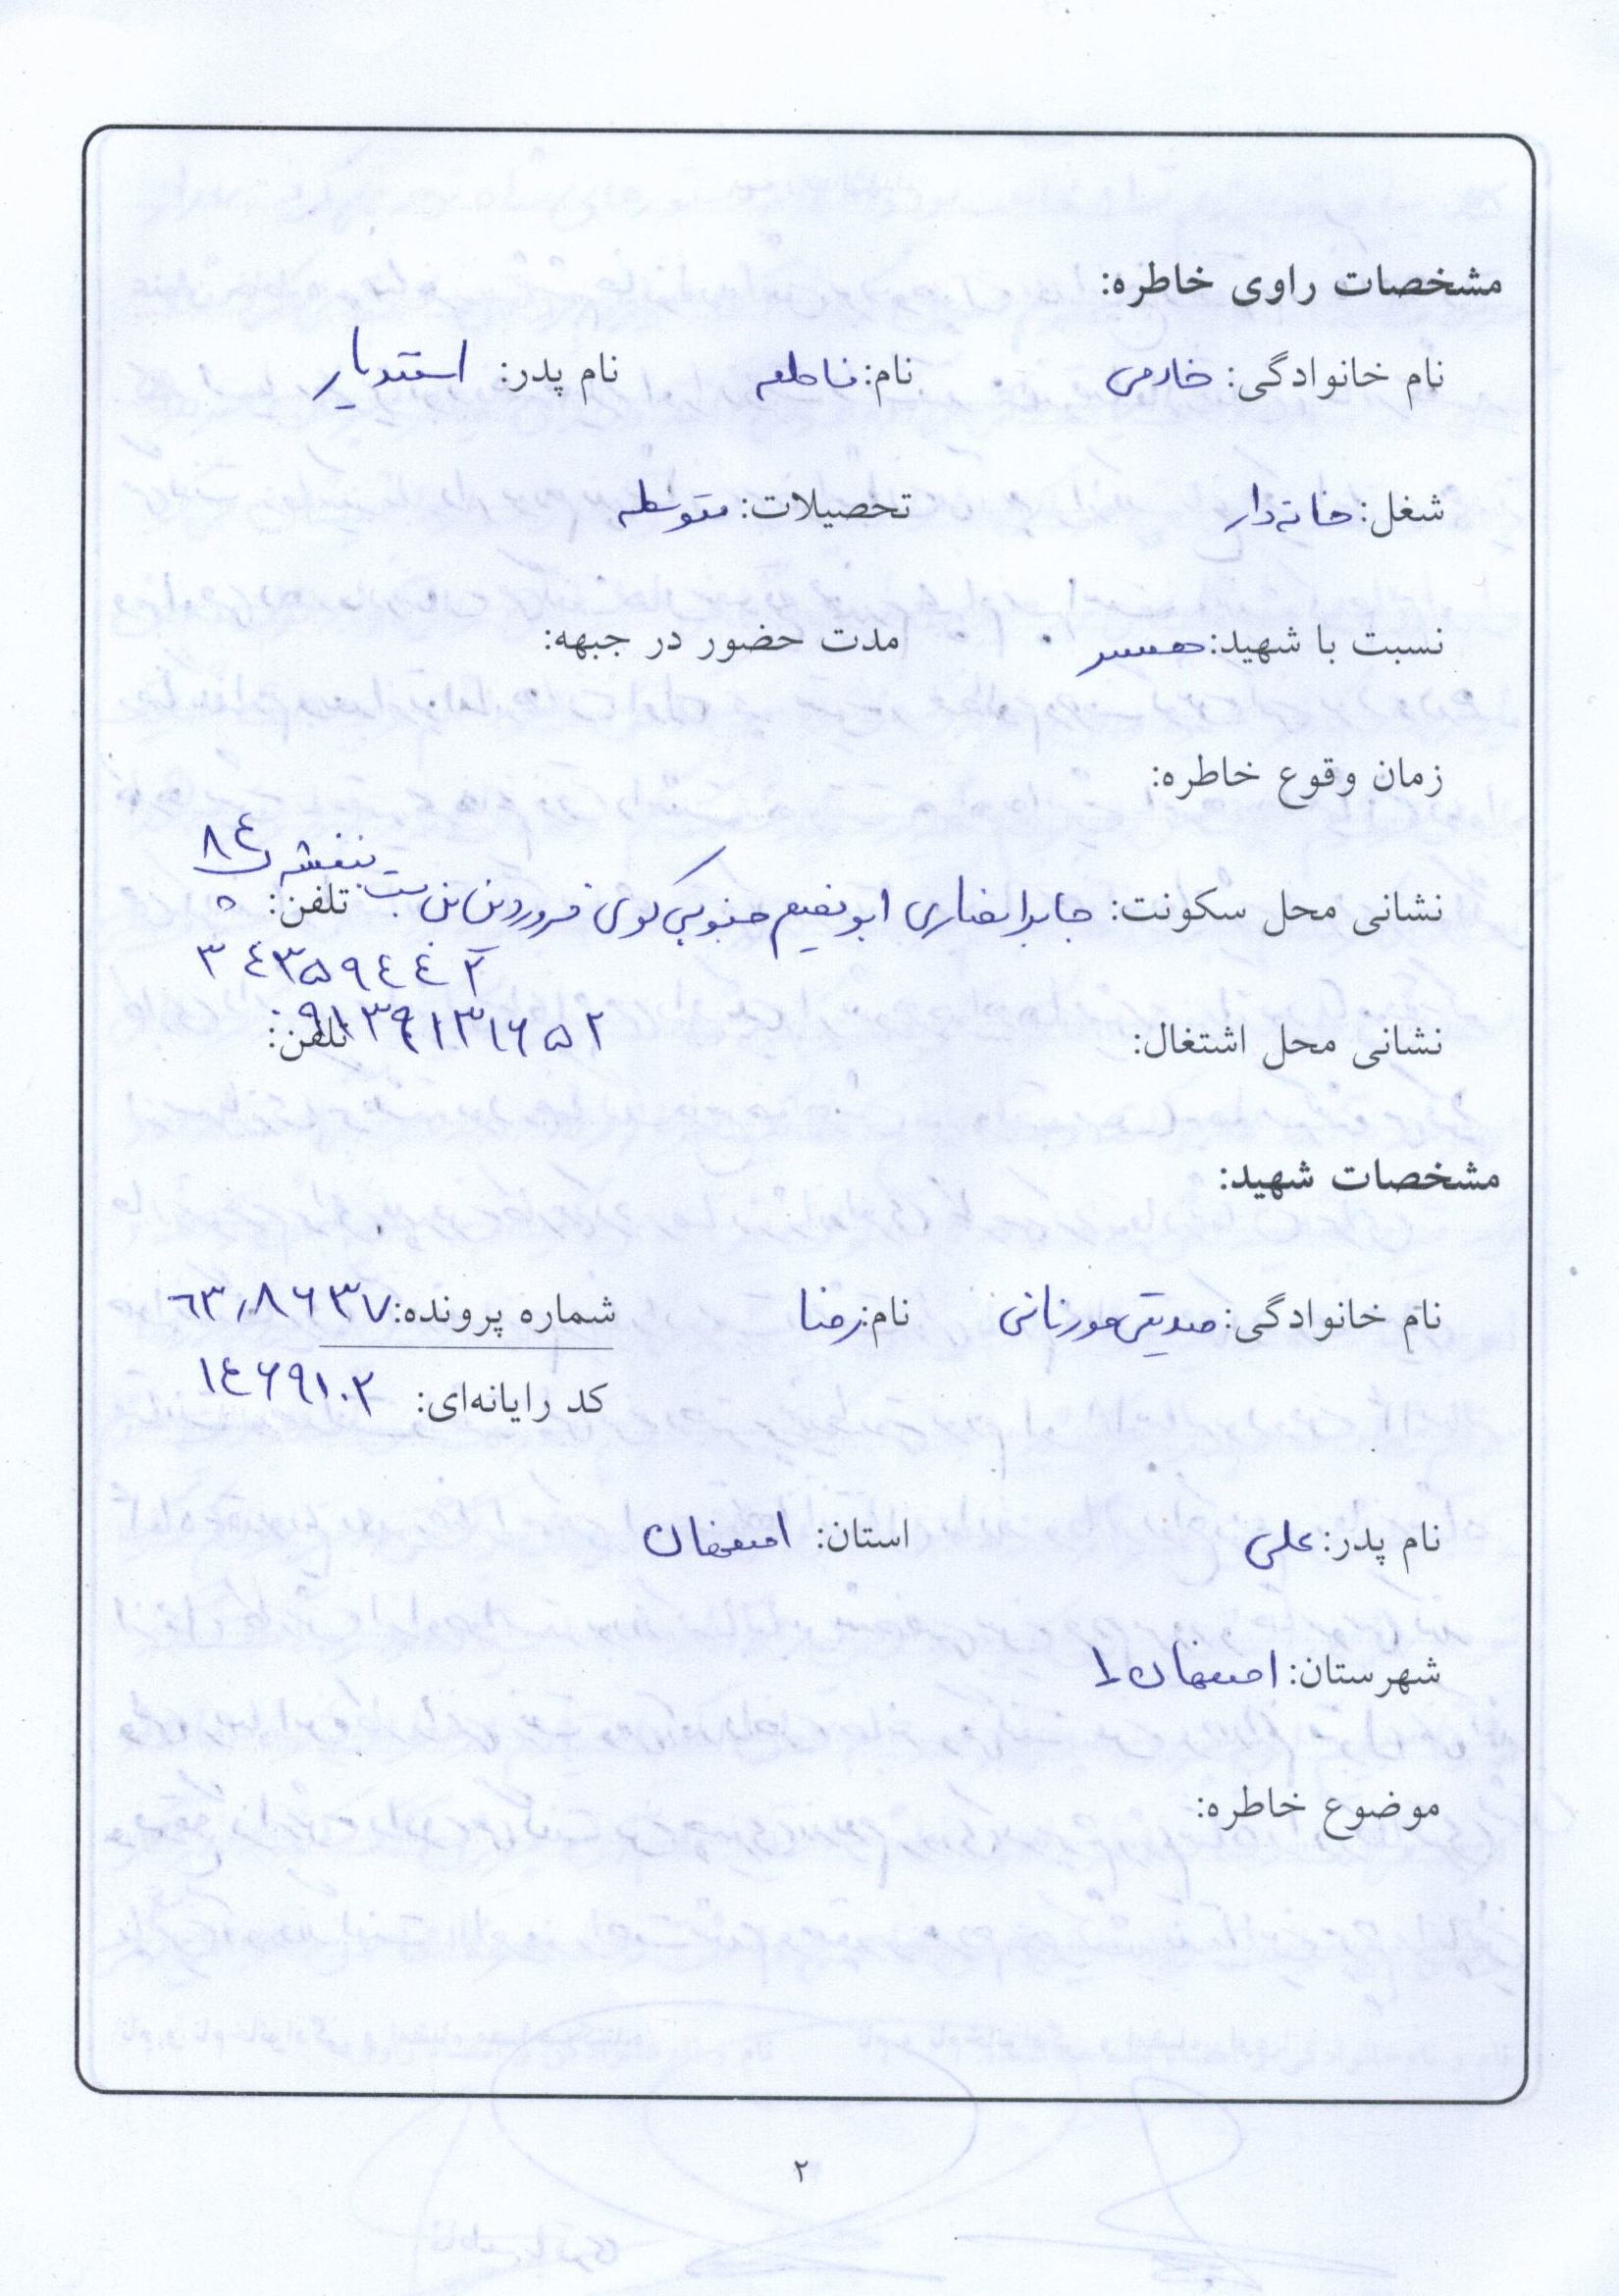 مشخصات راوی خاطره:
نام خانوادگی: خادمی نام: فاطمه نام پدر: اسفندیار
شغل: خانه‌دار تحصیلات: متوسطه
نسبت با شهید: همسر مدت حضور در جبهه:
زمان وقوع خاطره:
بنفشه ۸۴
نشانی محل سکونت: جابرانصاری ابونعیم جنوبی کوی فروردین بن بست تلفن:
۳۴۳۵۹۴۴۲
نشانی محل اشتغال: تلفن: ۰۹۱۳۹۱۳۱۶۵۲
مشخصات شهید:
نام خانوادگی: صدیقی مورنانی نام: رضا شماره پرونده: ۶۳۰۸۶۳۷
کد رایانه‌ای: ۱۴۶۹۱۰۲
نام پدر: علی استان: اصفهان
شهرستان: اصفهان ۱
موضوع خاطره:
۲